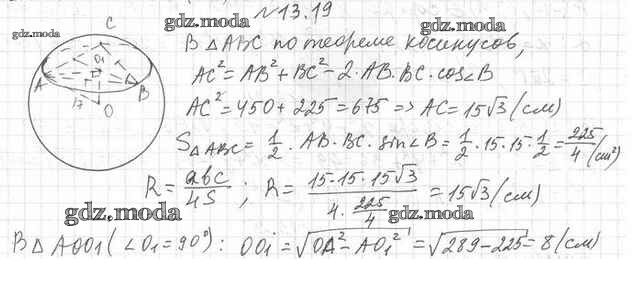 №13.19
C
gdz.moda
gdz.moda
gdz.moda
В △ABC по теореме косинусов,
AC² = AB² + BC² - 2·AB·BC·cos∠B
AC² = 450 + 225 = 675 => AC = 15√3 (см)
S△ABC = 1/2 · AB · BC · sin∠B = 1/2 · 15 · 15 · 1/2 = 225/4 (см²)
R = abc/4S ; R = 15·15·15√3 / 4·225/4 = 15√3 (см)
gdz.moda
gdz.moda
В △AOO1 (∠O1 = 90°): OO1 = √OA² - AO1² = √289 - 225 = 8 (см)
A
O1
B
17
O